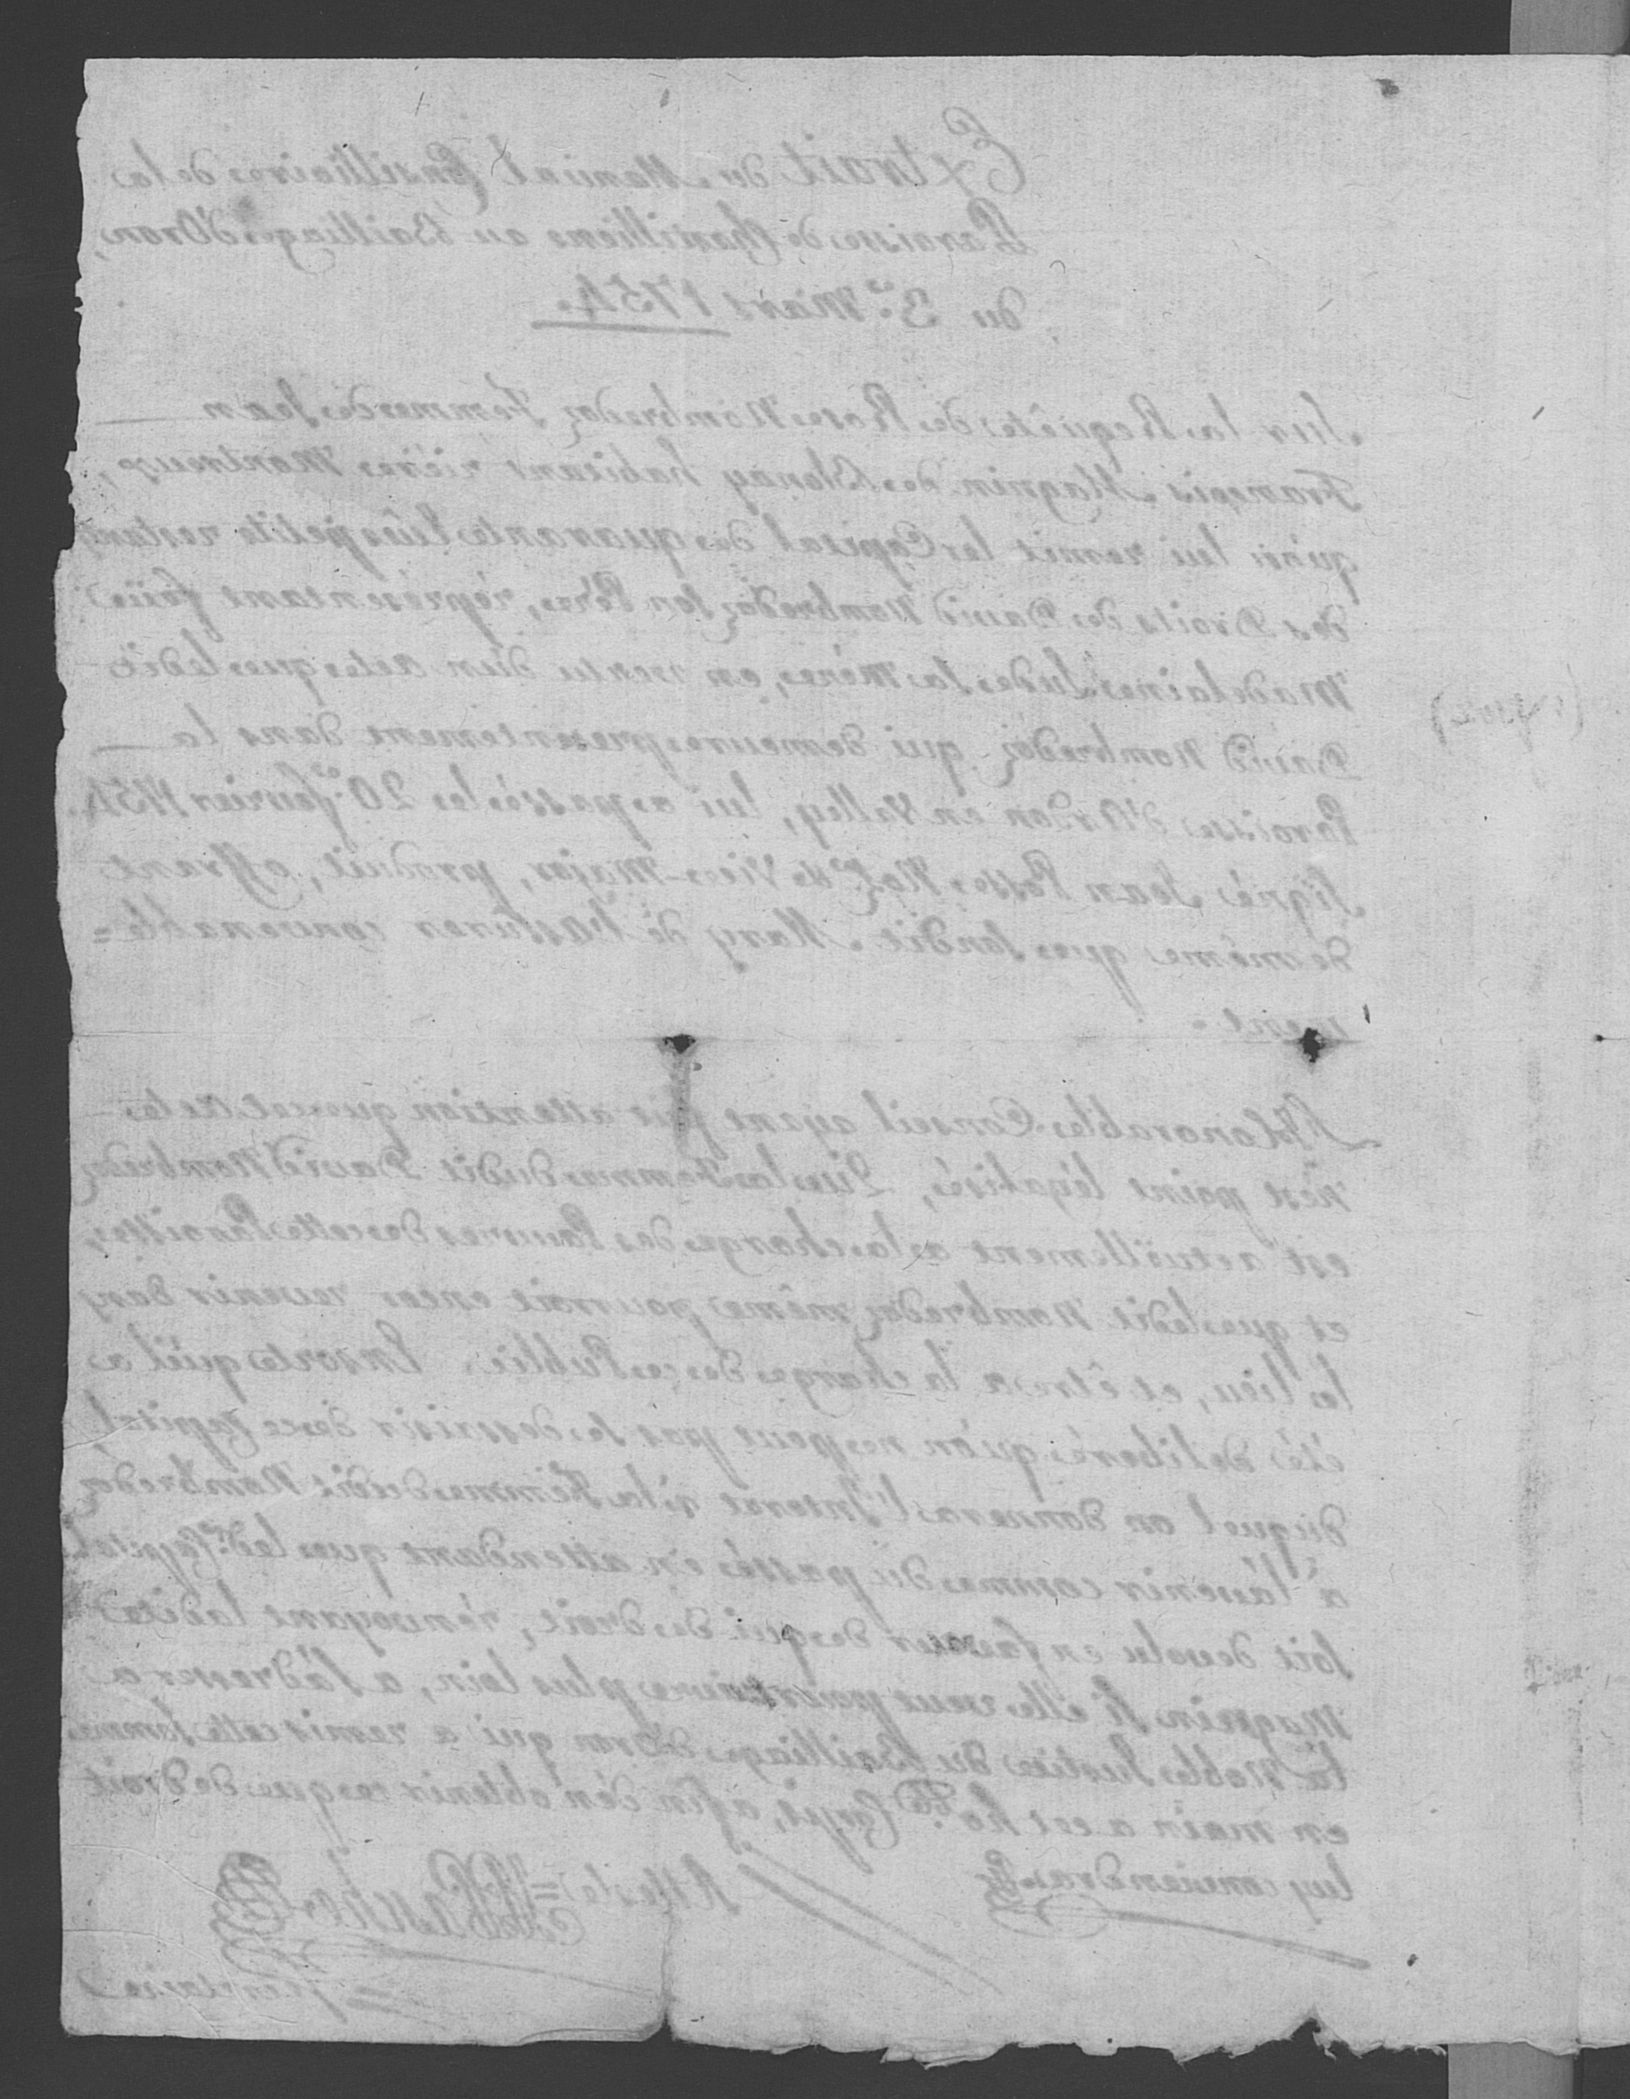 Extrait du Manual Consilliaire de la
Paroisse de Chevilliens au Bailliage d'Oron,
du 3.e Mars 1754.
Sur la Requête de Rose Nombredoz Femme de Jean
François Magnin de Blonay habitant rière Montreux,
qu'on lui remit le Capital de quarante petits restant
des Droits de David Nombredoz son Père, réprésentant feüe
Madelaine sa mère, en vertu d'un acte que ledit
David Nombredoz qui demeure présentement dans la
Paroisse d'Ardon en Valley, lui a passé le 20.e fevrier 1754.
signé Jean Not. de Vice-Major, produit, offrant
de même que sondit Mary de l'assurer convenable=
ment.
L'Honorable Conseil ayant fait attention que cet acte
n'est point légalisé, Que la Femme dudit David Nombredoz
est actuellement a la charge des Pauvres de cette Paroisse,
et que ledit Nombredoz même pourroit encor revenir dans
le lieu, et être a la charge de ce Public. Ensorte qu'il a
été deliberé qu'on ne peut pas se dessaisir de ce Capital,
duquel on donnera l'Interet à la Femme dudit Nombredoz
à l'avenir comme du passé en attendant que led.t Capital
soit devolu en faveur de qui de droit, renvoyant ladite
Magnin si elle veut poursuivre plus loin, a s'adresser a
la Noble Justice du Bailliage d'Oron qui a remis cette somme
en main a cet ho.ble Corps, afin d'en obtenir ce que de droit
luy conviendra.
Atteste=
= Secretaire